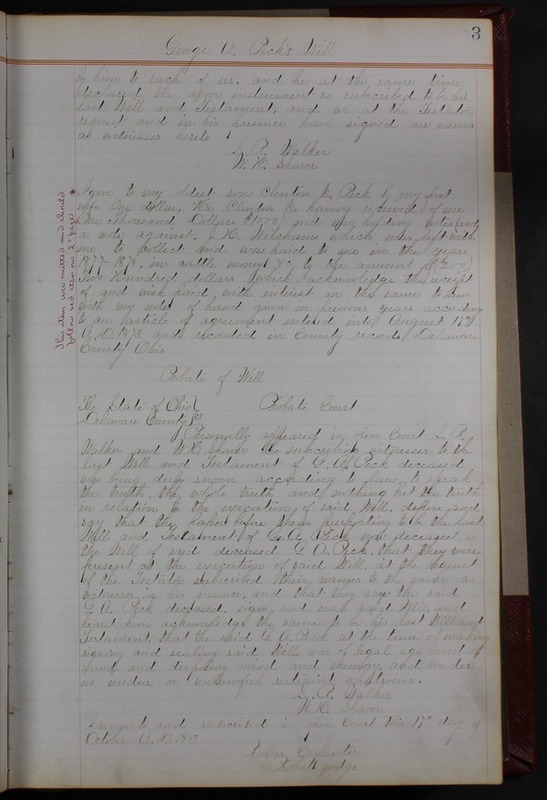 3
George A. Peck's Will
by him to each of us. and he at the same time
declared the apon instrument so subscribed to be his
last Will and Testament, and we at the Testator
request and in his presence have signed our names
as witnesses hereto
J. P. Walker
W. H. Shaver
I give to my oldest son Clinton Peck by my first
wife One dollar, He Clinton having received of me
One Thousand Dollars $1000 and my
a note against Welchams which was left with
me to collect and was paid to me in the years
1877-1878, in cattle money &c to the amount of
Two Hundred dollars which I acknowledge the receipt
of and wish paid with interest on the same to him
with my note of hand given in previous years according
to an article of agreement entered into August 17th
A.D. 1873 and recorded in County records Delaware
County Ohio
This item was omitted and should
follow item on 2d page
Probate of Will
The State of Ohio
Delaware County ss
Probate Court
Personally appeared in open Court J. P.
Walker and W. H. Shaver the subscribing witnesses to the
last Will and Testament of G. A. Peck deceased
who being duly sworn according to law to speak
the truth, the whole truth and nothing but the truth
in relation to the execution of said Will, depose and
say that the paper before them purporting to be the last
Will and Testament of G. A. Peck now deceased is
the Will of said deceased G. A. Peck, that they were
present at the execution of said Will, at the request
of the Testator subscribed their names to the same as
witnesses in his presence, and that they saw the said
G. A. Peck deceased, sign and seal said Will, and
heard him acknowledge the same to be his last Will and
Testament, that the said G. A. Peck at the time of making
signing and sealing said Will, was of legal age and of
sound and disposing mind and memory, and under
no undue or unlawful restraint whatsoever.
J. P. Walker
W. H. Shaver
Sworn to and subscribed in open Court this 17th day of
October A.D. 1880
Rufus Carpenter
Probate Judge